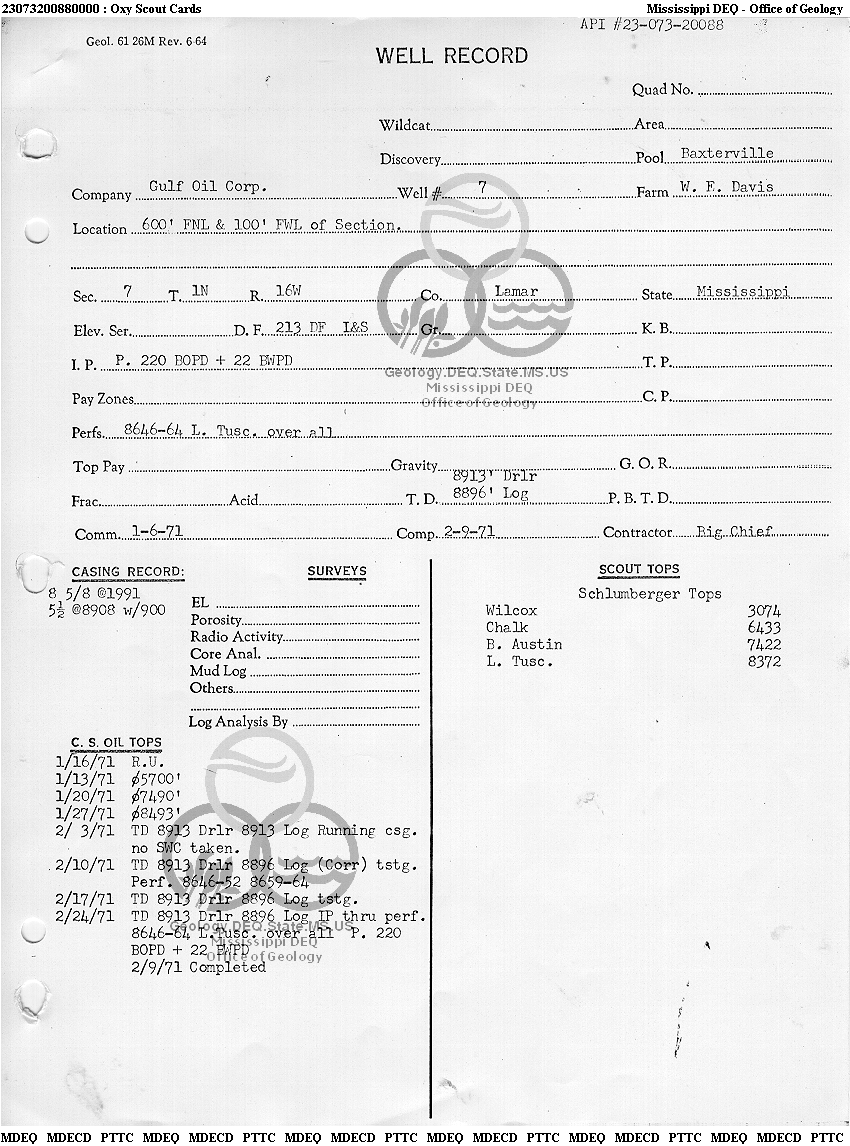 23073200880000 : Oxy Scout Cards Mississippi DEQ - Office of Geology
API #23-073-20088
Geol. 61 26M Rev. 6-64
WELL RECORD
Quad No.
Wildcat Area
Discovery Pool Baxterville
Company Gulf Oil Corp. Well # 7 Farm W. E. Davis
Location 600' FNL & 100' FWL of Section.
Sec. 7 T. 1N R. 16W Co. Lamar State Mississippi
Elev. Ser. D. F. 213 DF I&S Gr. K. B.
I. P. P. 220 BOPD + 22 BWPD T. P.
Geology.DEQ.State.MS.US
Mississippi DEQ
Office of Geology
Pay Zones C. P.
Perfs. 8646-64 L. Tusc. over all
Top Pay Gravity G. O. R.
8913' Drlr
Frac. Acid T. D. 8896' Log P. B. T. D.
Comm. 1-6-71 Comp. 2-9-71 Contractor Big Chief
CASING RECORD: SURVEYS SCOUT TOPS
8 5/8 @1991
5½ @8908 w/900
EL
Porosity
Radio Activity
Core Anal.
Mud Log
Others
Log Analysis By
Schlumberger Tops
Wilcox 3074
Chalk 6433
B. Austin 7422
L. Tusc. 8372
C. S. OIL TOPS
1/16/71 R.U.
1/13/71 ø5700'
1/20/71 ø7490'
1/27/71 ø8493'
2/ 3/71 TD 8913 Drlr 8913 Log Running csg.
no SWC taken.
2/10/71 TD 8913 Drlr 8896 Log (Corr) tstg.
Perf. 8646-52 8659-64
2/17/71 TD 8913 Drlr 8896 Log tstg.
2/24/71 TD 8913 Drlr 8896 Log IP thru perf.
8646-64 L.Tusc. over all P. 220
BOPD + 22 BWPD
2/9/71 Completed
Geology.DEQ.State.MS.US
Mississippi DEQ
Office of Geology
MDEQ MDECD PTTC MDEQ MDECD PTTC MDEQ MDECD PTTC MDEQ MDECD PTTC MDEQ MDECD PTTC MDEQ MDECD PTTC